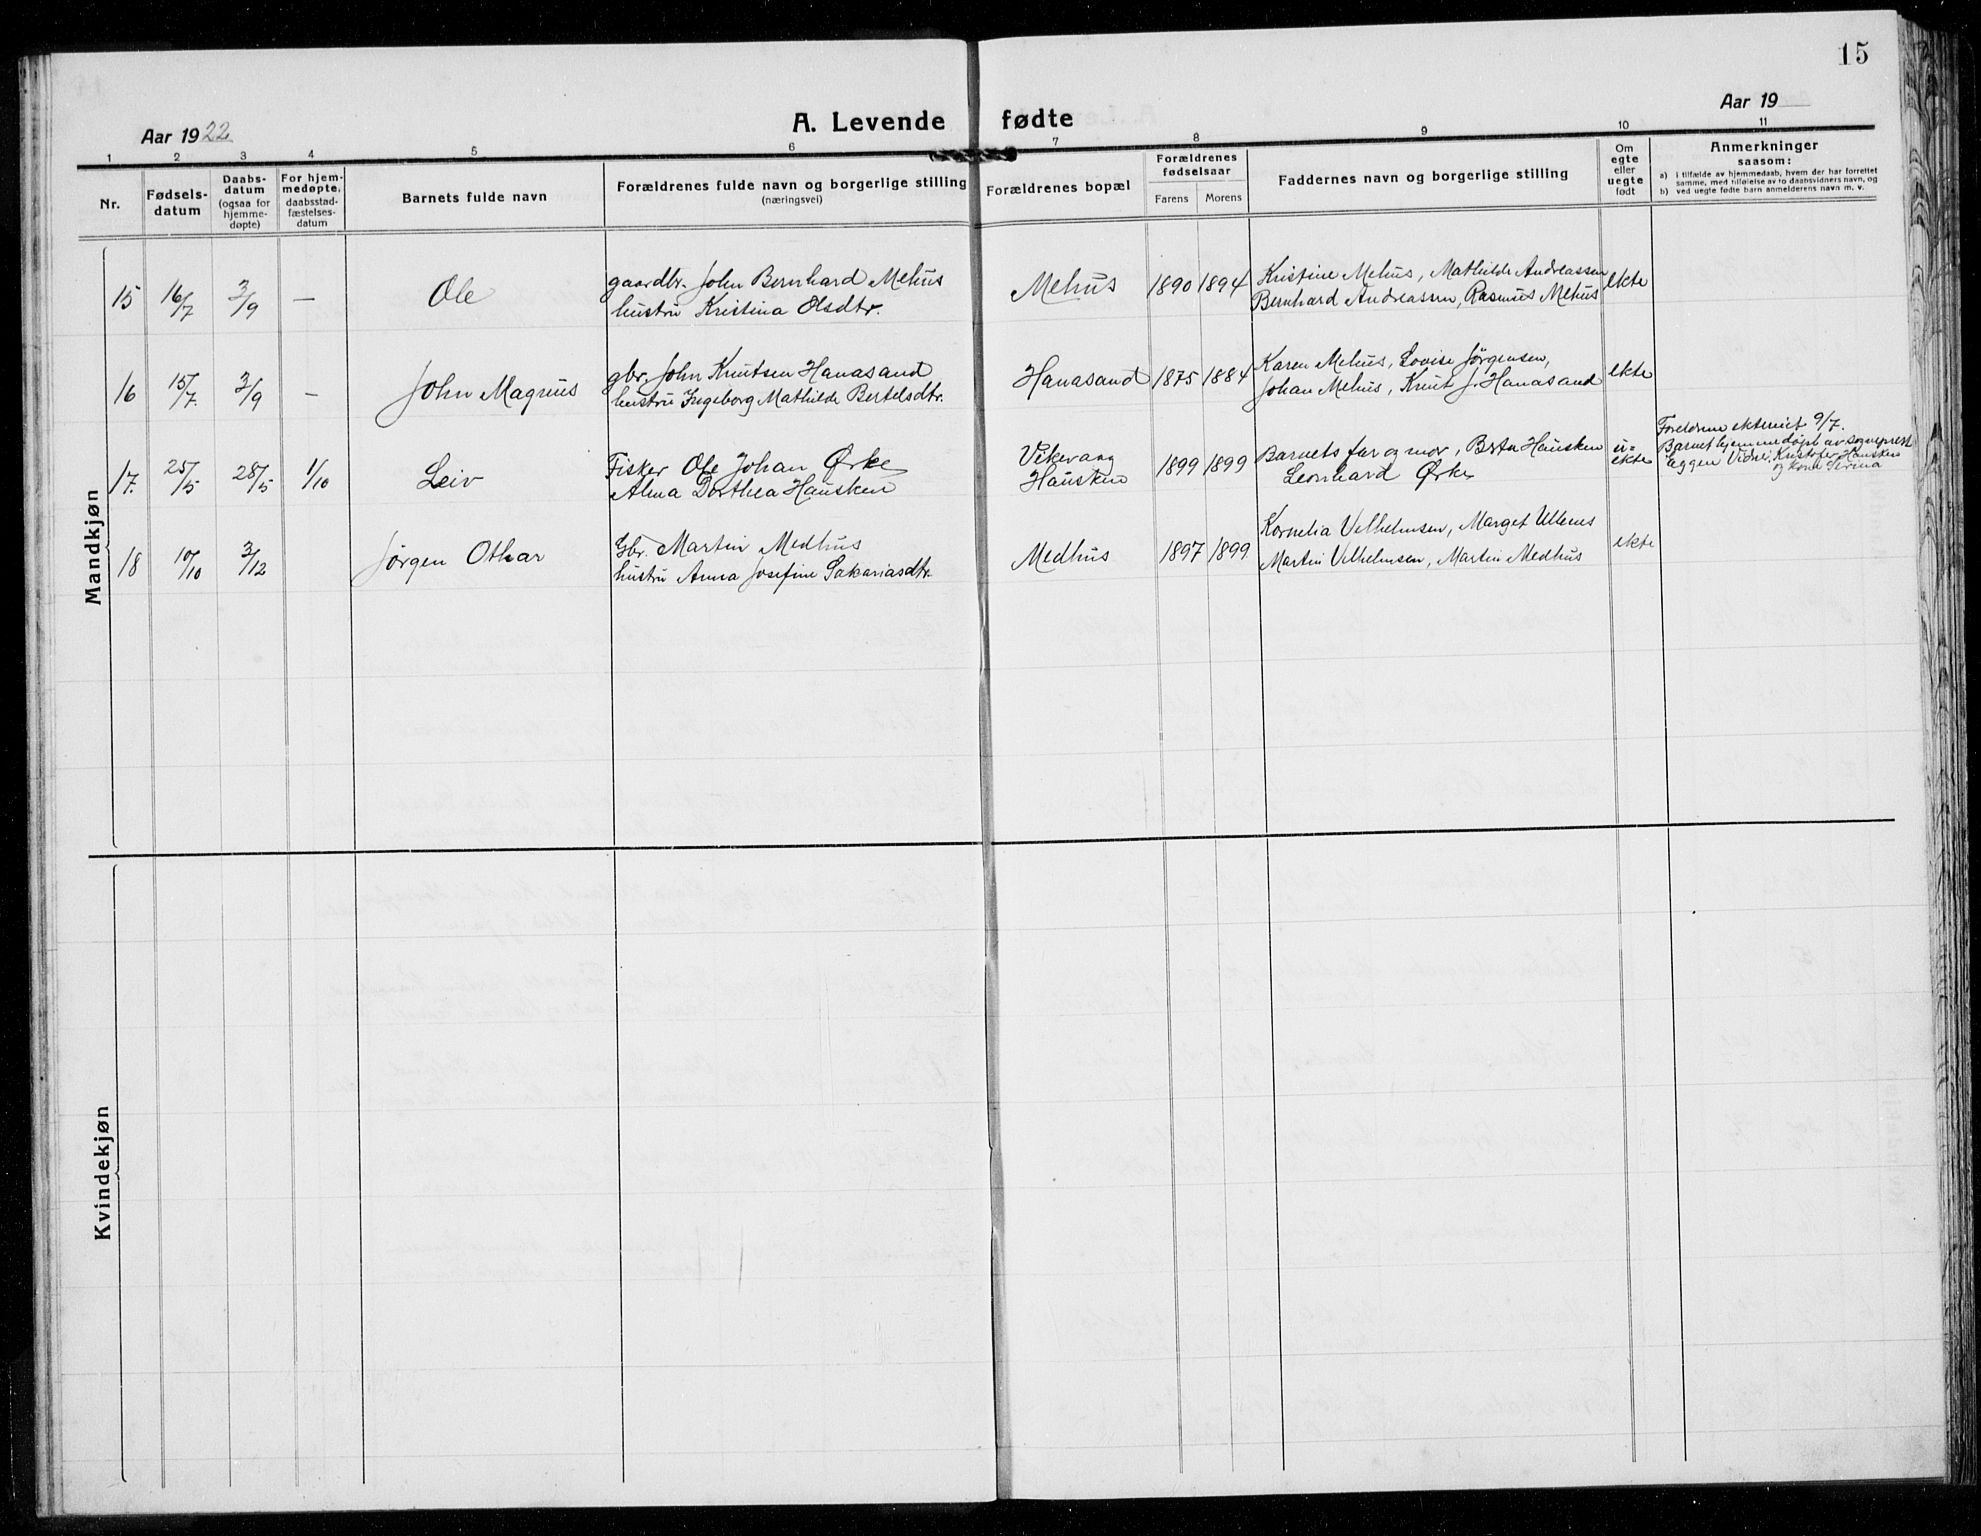 15
Aar 1922
A. Levende fødte
Aar 19
1 2 3 4 5 6 7 8 9 10 11
Nr.
Fødsels-
datum
Daabs-
datum
(ogsaa for
hjemme-
døpte)
For hjem-
medøpte,
daabsstad-
fæstelses-
datum
Barnets fulde navn
Forældrenes fulde navn og borgerlige stilling
(næringsvei)
Forældrenes bopæl
Forældrenes
fødselsaar
Farens Morens
Faddernes navn og borgerlige stilling
Om
egte
eller
uegte
født
Anmerkninger
saasom:
a) i tilfælde av hjemmedaab, hvem der har forrettet
samme, med tilføielse av to daabsvidners navn, og
b) ved uegte fødte barn anmelderens navn m. v.
Mandkjøn
15 16/7 3/9 — Ole
gaardbr. John Bernhard Mehus
hustru Kristina Olsdtr.
Mehus 1890 1894
Kristine Mehus, Mathilde Andreassen
Bernhard Andreassen, Rasmus Mehus
ekte
16 15/7. 3/9 - John Magnus
gbr. John Knutsen Hanasand
hustru Ingeborg Mathilde Bertelsdtr.
Hanasand 1875 1884
Karen Mehus, Lovise Jørgensen,
Johan Mehus, Knut J. Hanasand
ekte
17. 25/5 28/5 1/10 Leiv
Fisker Ole Johan Ørke
Alma Dorthea Hausken
Vikevaag
Hausken
1899 1899
Barnets far og mor, Berta Hausken
Leonhard Ørke
u-
ekte
Foreldrene ekteviet 9/7.
Barnet hjemmedøpt av sogneprest
Eggen Vidne: Kristofer Hausken
og kone Serina
18 10/10 3/12 Jørgen Othar
Gbr. Martin Medhus
hustru Anna Josefine Sakariasdtr.
Medhus 1897 1899
Kornelia Vilhelmsen, Marget Ullenes
Martin Vilhelmsen, Martin Medhus
ekte
Kvindekjøn